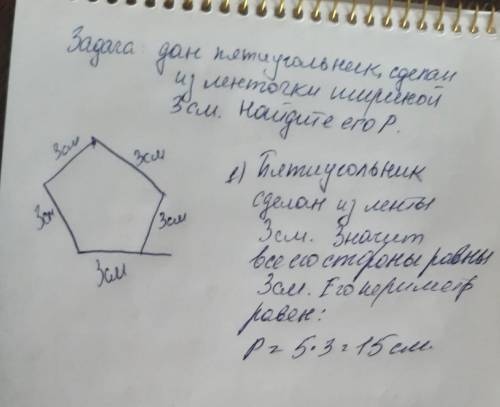 Задача: дан пятиугольник, сделан
из ленточки шириной
3см. Найдите его P.
3см
3см
3см
3см
3см
1) Пятиугольник
сделан из ленты
3см. Значит
все его стороны равны
3см. Его периметр
равен:
P = 5·3 = 15см.